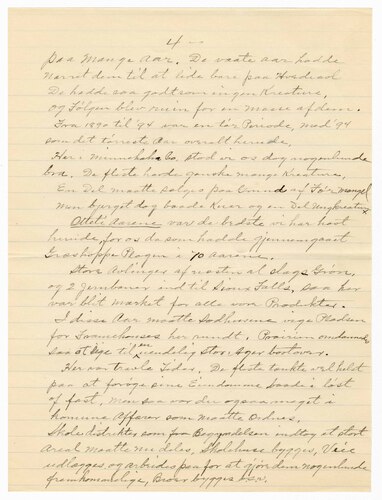 4 —
paa Mange Aar. De vaate aar hadde
narret dem til at lide bare paa Hvedeavl
De hadde saa godt som ingen Kreature,
og Følgen blev ruin for en Masse af dem.
Fra 1890 til '94 var en tør Periode, med '94
som det tørreste Aar overalt herude,
Her i Minnehaha Co. stod er os dog nogenlunde
bra. De fleste hadde ganske mange Kreature,
En Del maatte sælges paa Grund af Fór mangel
Men berget dog baade Kuer og en Del Ungkreature
Otteti Aarene var de bedste vi har hat
herude, for os da som hadde gjennemgaaet
Græshoppe Plagen i 70 Aarene.
Store Avlinger af næsten al slags Grøn,
og 2 Jernbaner ind til Sioux Falls, saa her
var blit market for alle vore Produkter.
I disse Aar maatte Sodhusene vige Pladsen
for Framehouses her rundt. Prairien omdannes
saa at sige til en uendelig stor Ager bortover.
Her var travle Tider. De fleste tænkte vel helst
paa at forøge sine Eiendomme baade i løst
og fast, men saa var der ogsaa meget i
komuna Affærer som maatte Ordnes.
Skole distrikter som fra Begyndelsen indtog et stort
Areal maatte nu deles, Skolehuse bygges, Veie
udlægges og arbeides paa for at gjøre dem nogenlunde
fremkommelige, Broer bygges